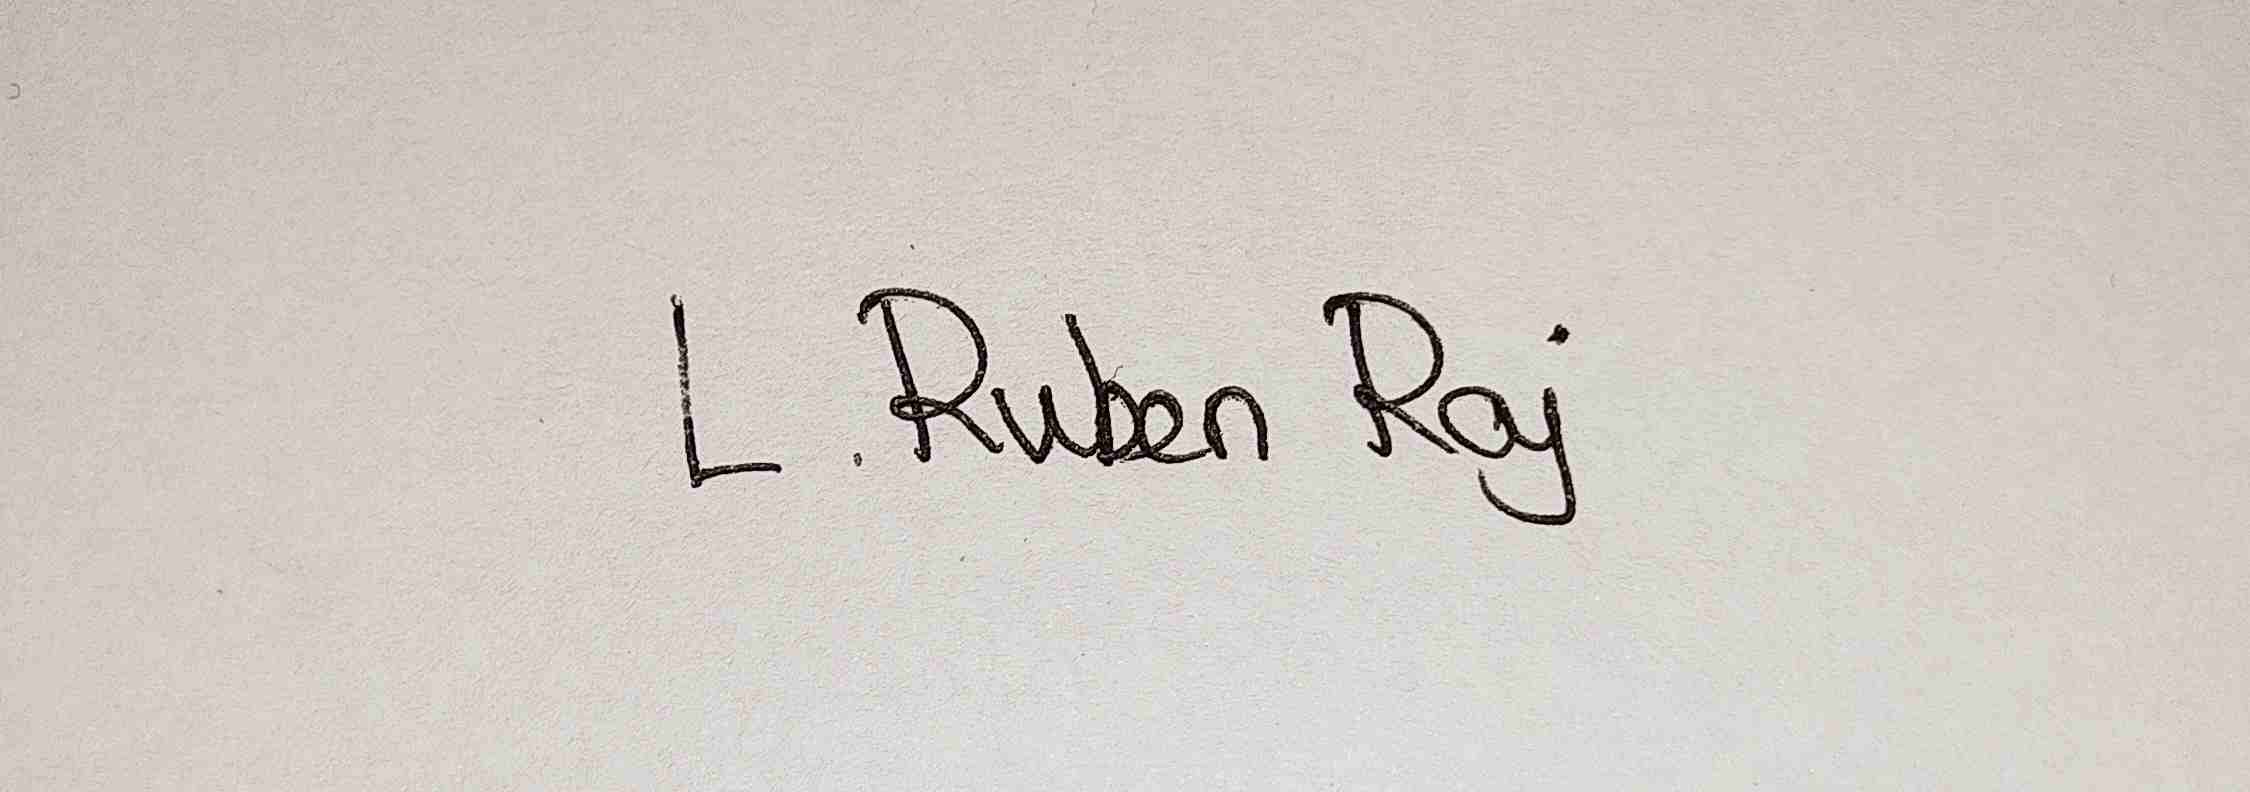 L. Ruben Raj